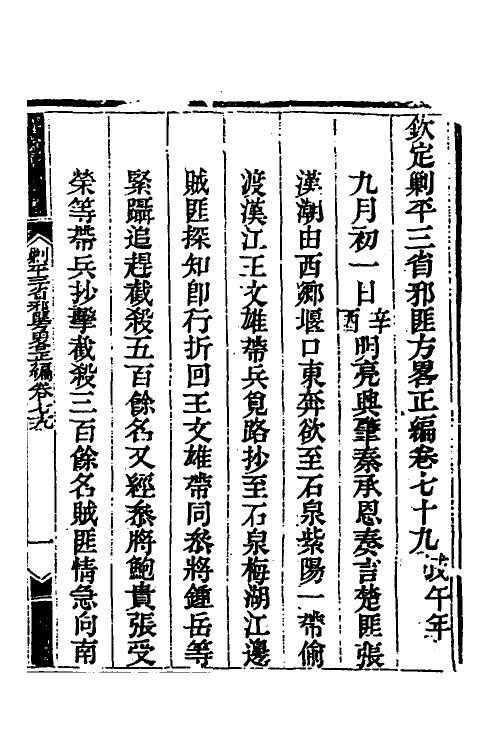 欽定剿平三省邪匪方畧正編卷七十九 戊午年
九月初一日辛酉明亮興肇秦承恩奏言楚匪張
漢潮由西鄉堰口東奔欲至石泉紫陽一帶偷
渡漢江王文雄帶兵覓路抄至石泉梅湖江邊
賊匪探知卽行折回王文雄帶同叅將鍾岳等
緊躡追趕截殺五百餘名又經叅將鮑貴張受
榮等帶兵抄擊截殺三百餘名賊匪情急向南
剿平三省邪匪方畧正編卷七十九
一